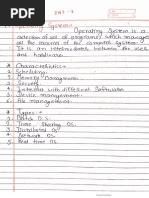 Unit - 1
* Operating System :-
Operating System is a
collection of set of programs which manages
all the resources of the computer system.
It is an intermediate between the user
and hardware.
* Characteristics :-
1. Scheduling.
2. Memory Management.
3. Security.
4. Interface with different Softwares
5. Device management.
6. File management.
* Types :-
1. Batch O.S.
2. Time Sharing OS.
3. Distributed OS.
4. Network OS.
5. Real time OS.